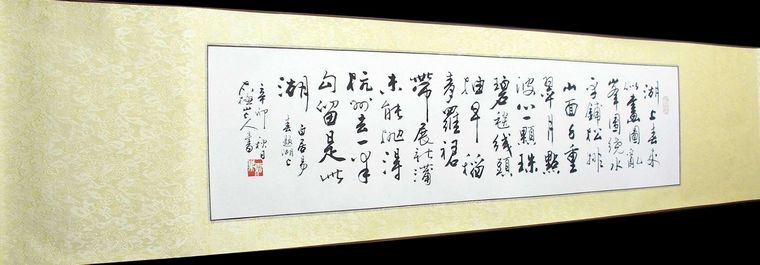 湖上春來
似畫圖亂
峯圍繞水
平鋪松排
山面千重
翠月點
波心一顆珠
碧毯线頭
抽早稻
青羅裙
帶展新蒲
未能抛得
杭州去一半
勾留是此
湖
白居易
春題湖上
辛卯秋日
山人書